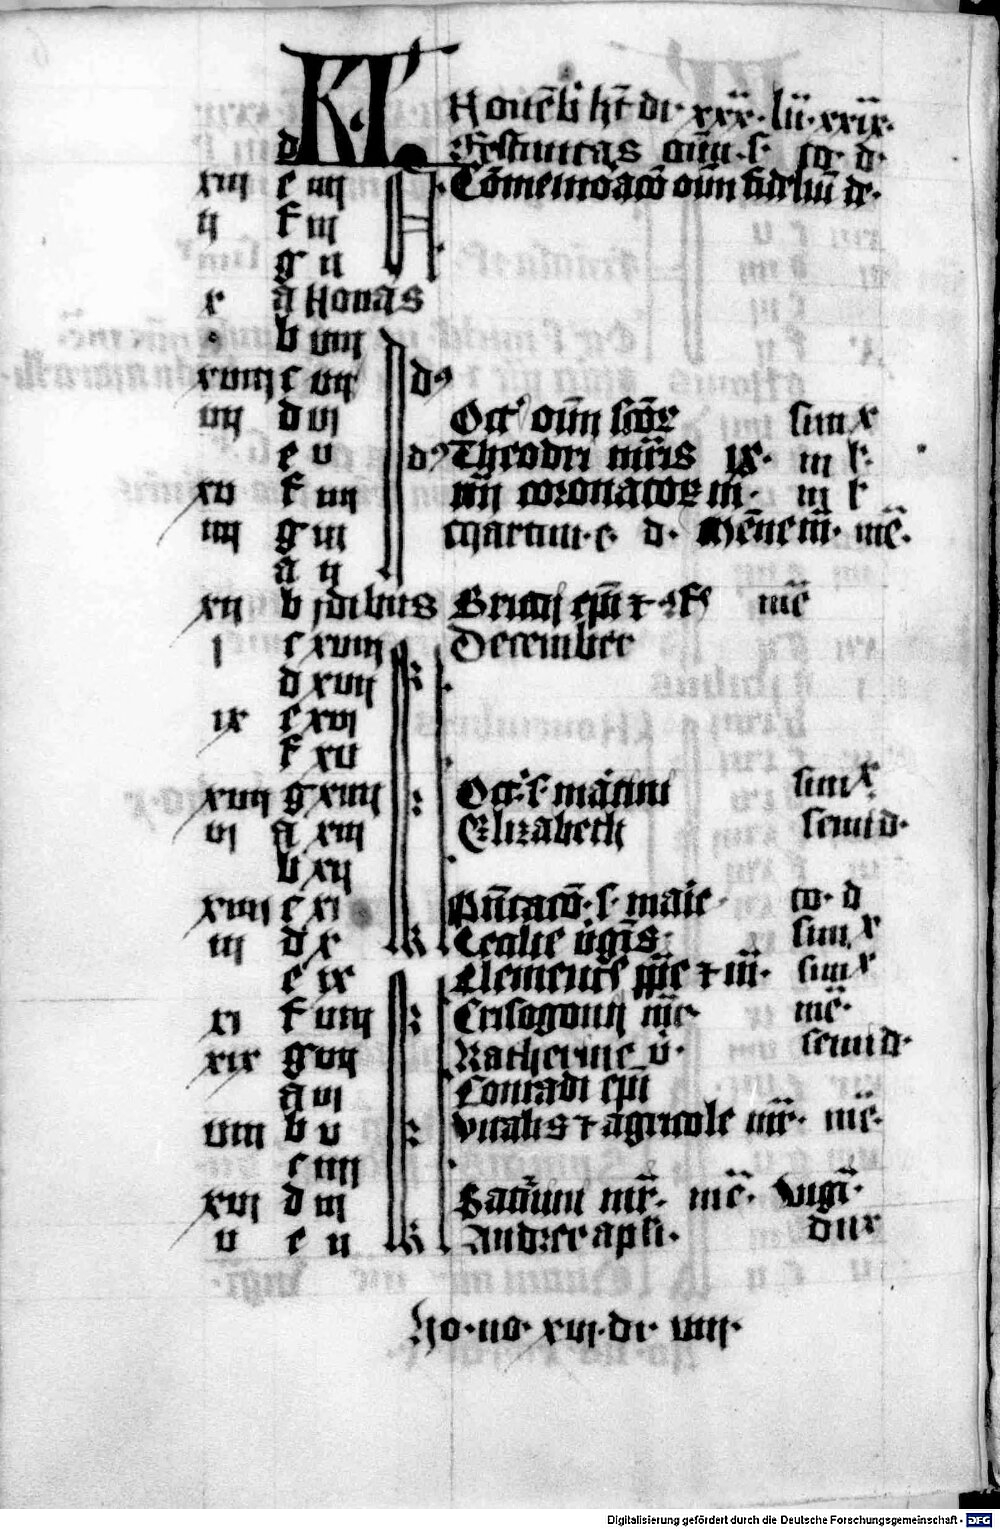 KL Nouēb̄ ht̄ di· xxx· lū· xxix·
d Festiuitas oīm·s· to· d·
xiii e iiii Cōmemoacō oīm fideliū de·
ii f iii
g ii
x a Nonas
b viii
xviii c vii d9
vii d vi Oct' oīm scōꝝ simx
e v d9 Theodri mr̄is ix· iii l·
xv f iiii iiii coronatoꝝ m̄· iii l
iiii g iii Martini·e· d· Mēnem̄· mē·
a ii
xii b jdibus Bricii ep̄i ⁊ 9f' mē
i c xviii December
d xvii
ix e xvi
f xv
xvii g xiiii Oct'·s· mātini simx
vi a xiii Elizabeth semid·
b xii
xiiii c xi Pn̄tacō·s· marie· to· d
iii d x Cecilie ūgis· simx
e ix Clementis pp̄e ⁊ m̄· simx
xi f viii Crisogoni mr̄· mē·
xix g vii Katherine v̄· semid·
a vi Conradi ep̄i
viii b v Vitalis ⁊ agricole mr̄· mē·
c iiii
xvi d iii Sat'nini mr̄· mē· vigi̅·
v e ii Andree apli· dux
Ho·no· xvi·di· viii·
Digitalisierung gefördert durch die Deutsche Forschungsgemeinschaft - DFG